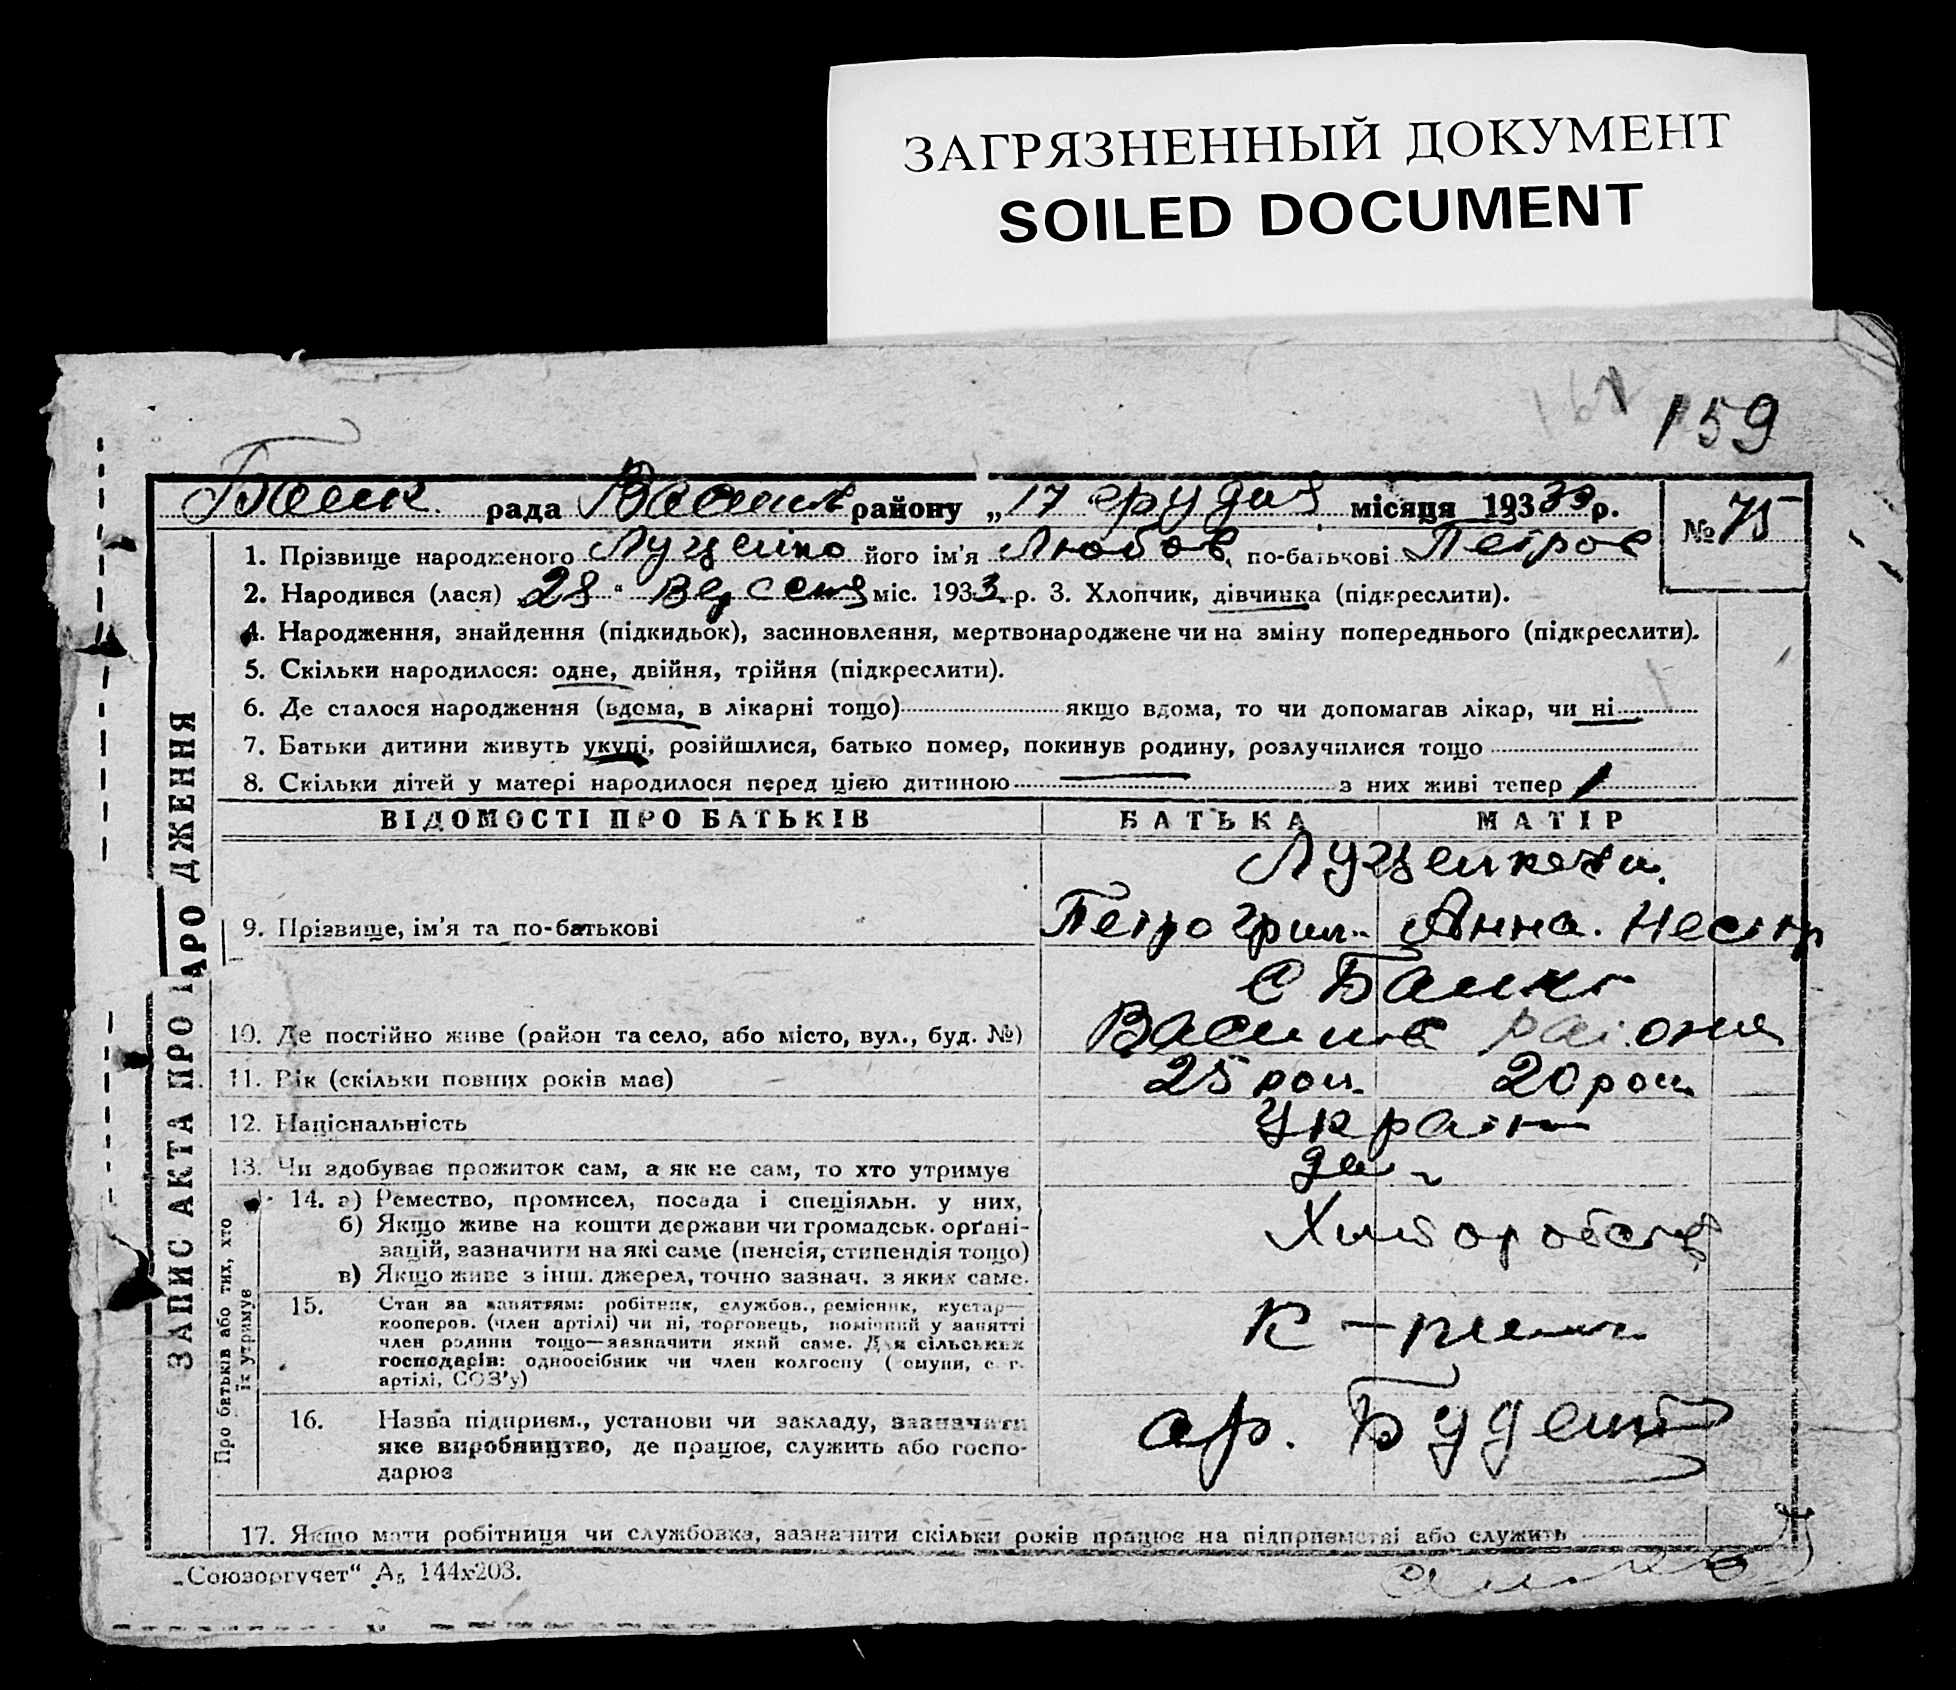 ЗАГРЯЗНЕННЫЙ ДОКУМЕНТ
SOILED DOCUMENT
159
рада Васил району „17 грудня місяця 193 33 р. № 75
1. Прізвище народженого Луценко його ім'я Любов по-батькові Петров
2. Народився (лася) 28 " Вересня міс. 1933 р. 3. Хлопчик, дівчинка (підкреслити).
4. Народження, знайдення (підкидьок), засиновлення, мертвонароджене чи на зміну попереднього (підкреслити).
5. Скільки народилося: одне, двійня, трійня (підкреслити).
6. Де сталося народження (вдома, в лікарні тощо) якщо вдома, то чи допомагав лікар, чи ні
7. Батьки дитини живуть укупі, розійшлися, батько помер, покинув родину, розлучилися тощо
8. Скільки дітей у матері народилося перед цією дитиною — з них живі тепер 1
ЗАПИС АКТА ПРО НАРОДЖЕННЯ
ВІДОМОСТІ ПРО БАТЬКІВ БАТЬКА МАТІР
9. Прізвище, ім'я та по-батькові
Петро Григ. Анна Нестр
10. Де постійно живе (район та село, або місто, вул., буд. №)
Васил району
11. Рік (скільки повних років має) 25 рок 20 рок
12. Національність Україн
13. Чи здобуває прожиток сам, а як не сам, то хто утримує
Про батьків або тих, хто їх утримує
14. а) Ремество, промисел, посада і спеціяльн. у них,
б) Якщо живе на кошти держави чи громадськ. орґані-
зацій, зазначити на які саме (пенсія, стипендія тощо)
в) Якщо живе з інш. джерел, точно зазнач. з яких саме.
15. Стан за заняттям: робітник, службов., ремісник, кустар—
кооперов. (член артілі) чи ні, торговець, помічний у занятті
член родини тощо—зазначити який саме. Для сільських
господарів: одноосібник чи член колгоспу (комуни, с. г.
артілі, СОЗ'у)
16. Назва підприєм., установи чи закладу, зазначити
яке виробництво, де працює, служить або госпо-
дарює
ар. Будени
17. Якщо мати робітниця чи службовка, зазначити скільки років працює на підприємстві або служить
„Союзоргучет“ А₅ 144х203.